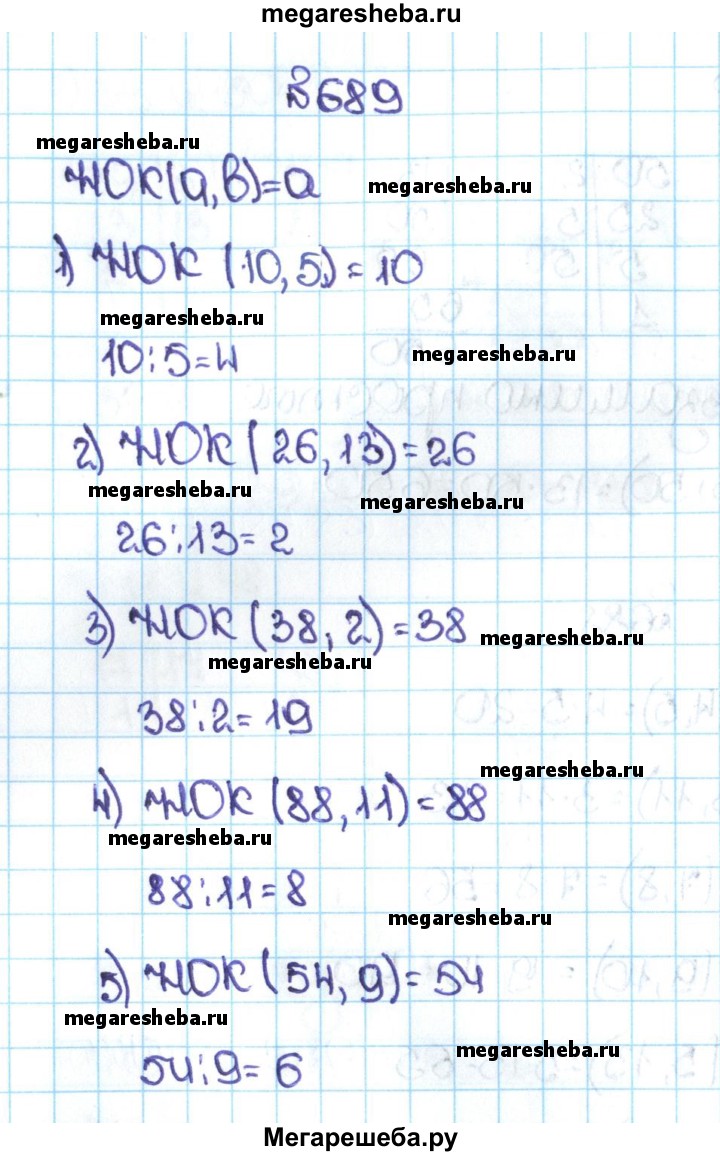 megaresheba.ru
№689
megaresheba.ru
НОК(а,в)=а
megaresheba.ru
1) НОК (10,5)=10
megaresheba.ru
10:5=4
megaresheba.ru
2) НОК (26,13)=26
megaresheba.ru
megaresheba.ru
26:13=2
3) НОК (38,2)=38
megaresheba.ru
megaresheba.ru
38:2=19
megaresheba.ru
4) НОК (88,11)=88
megaresheba.ru
88:11=8
megaresheba.ru
5) НОК (54,9)=54
megaresheba.ru
megaresheba.ru
54:9=6
Мегарешеба.ру